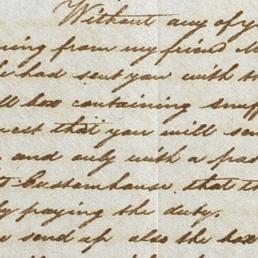 Without any of y
ning from my friend
had sent you with th
ll box containing snuff
rest that you will sen
and only with a pas
Customhouse, that th
y paying the duty.
send up also the box